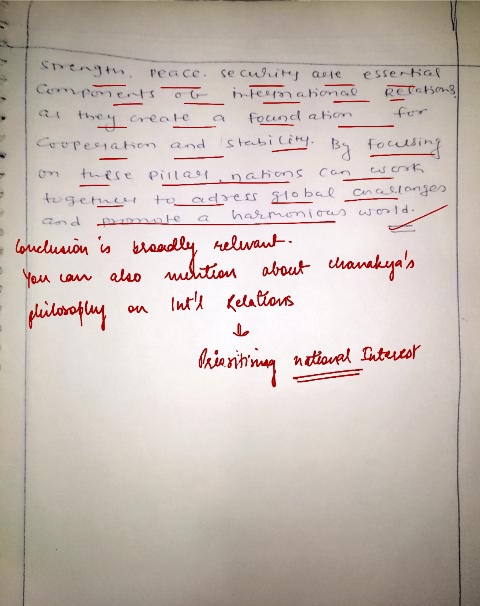 Strength, peace, security are essential
Components of international Relations,
as they create a foundation for
Cooperation and stability. By focusing
on these pillars, nations can work
together to adress global challanges
and promote a harmonious world.
Conclusion is broadly relevant.
You can also mention about chanakya's
philosophy on Int'l Relations
↓
Prioritising national Interest